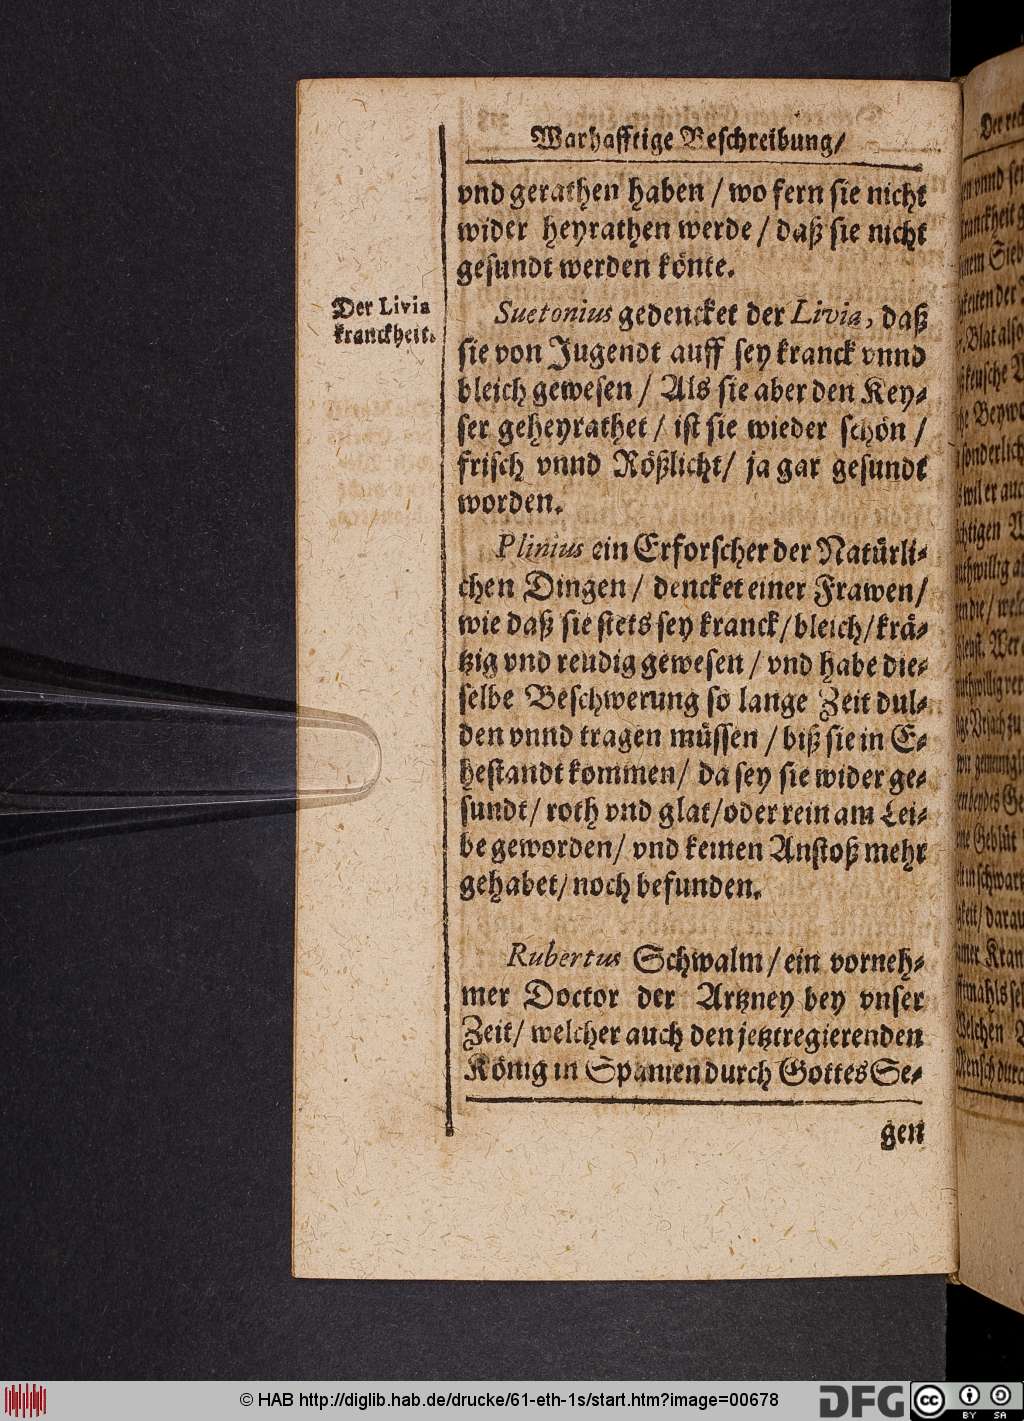 Warhafftige Beschreibung/
vnd gerathen haben / wo fern sie nicht
wider heyrathen werde / daß sie nicht
gesundt werden könte.
Der Livia
kranckheit.
Suetonius gedencket der Livia, daß
sie von Jugendt auff sey kranck vnnd
bleich gewesen / Als sie aber den Key-
ser geheyrathet / ist sie wieder schön /
frisch vnnd Rößlicht / ja gar gesundt
worden.
Plinius ein Erforscher der Natürli-
chen Dingen / dencket einer Frawen /
wie daß sie stets sey kranck / bleich / krä-
tzig vnd reudig gewesen / vnd habe die-
selbe Beschwerung so lange Zeit dul-
den vnnd tragen müssen / biß sie in E-
hestandt kommen / da sey sie wider ge-
sundt / roth vnd glat / oder rein am Lei-
be geworden / vnd keinen Anstoß mehr
gehabet / noch befunden.
Rubertus Schwalm / ein vorneh-
mer Doctor der Artzney bey vnser
Zeit / welcher auch den jetztregierenden
König in Spanien durch Gottes Se-
gen
© HAB http://diglib.hab.de/drucke/61-eth-1s/start.htm?image=00678
DFG
cc
BY SA